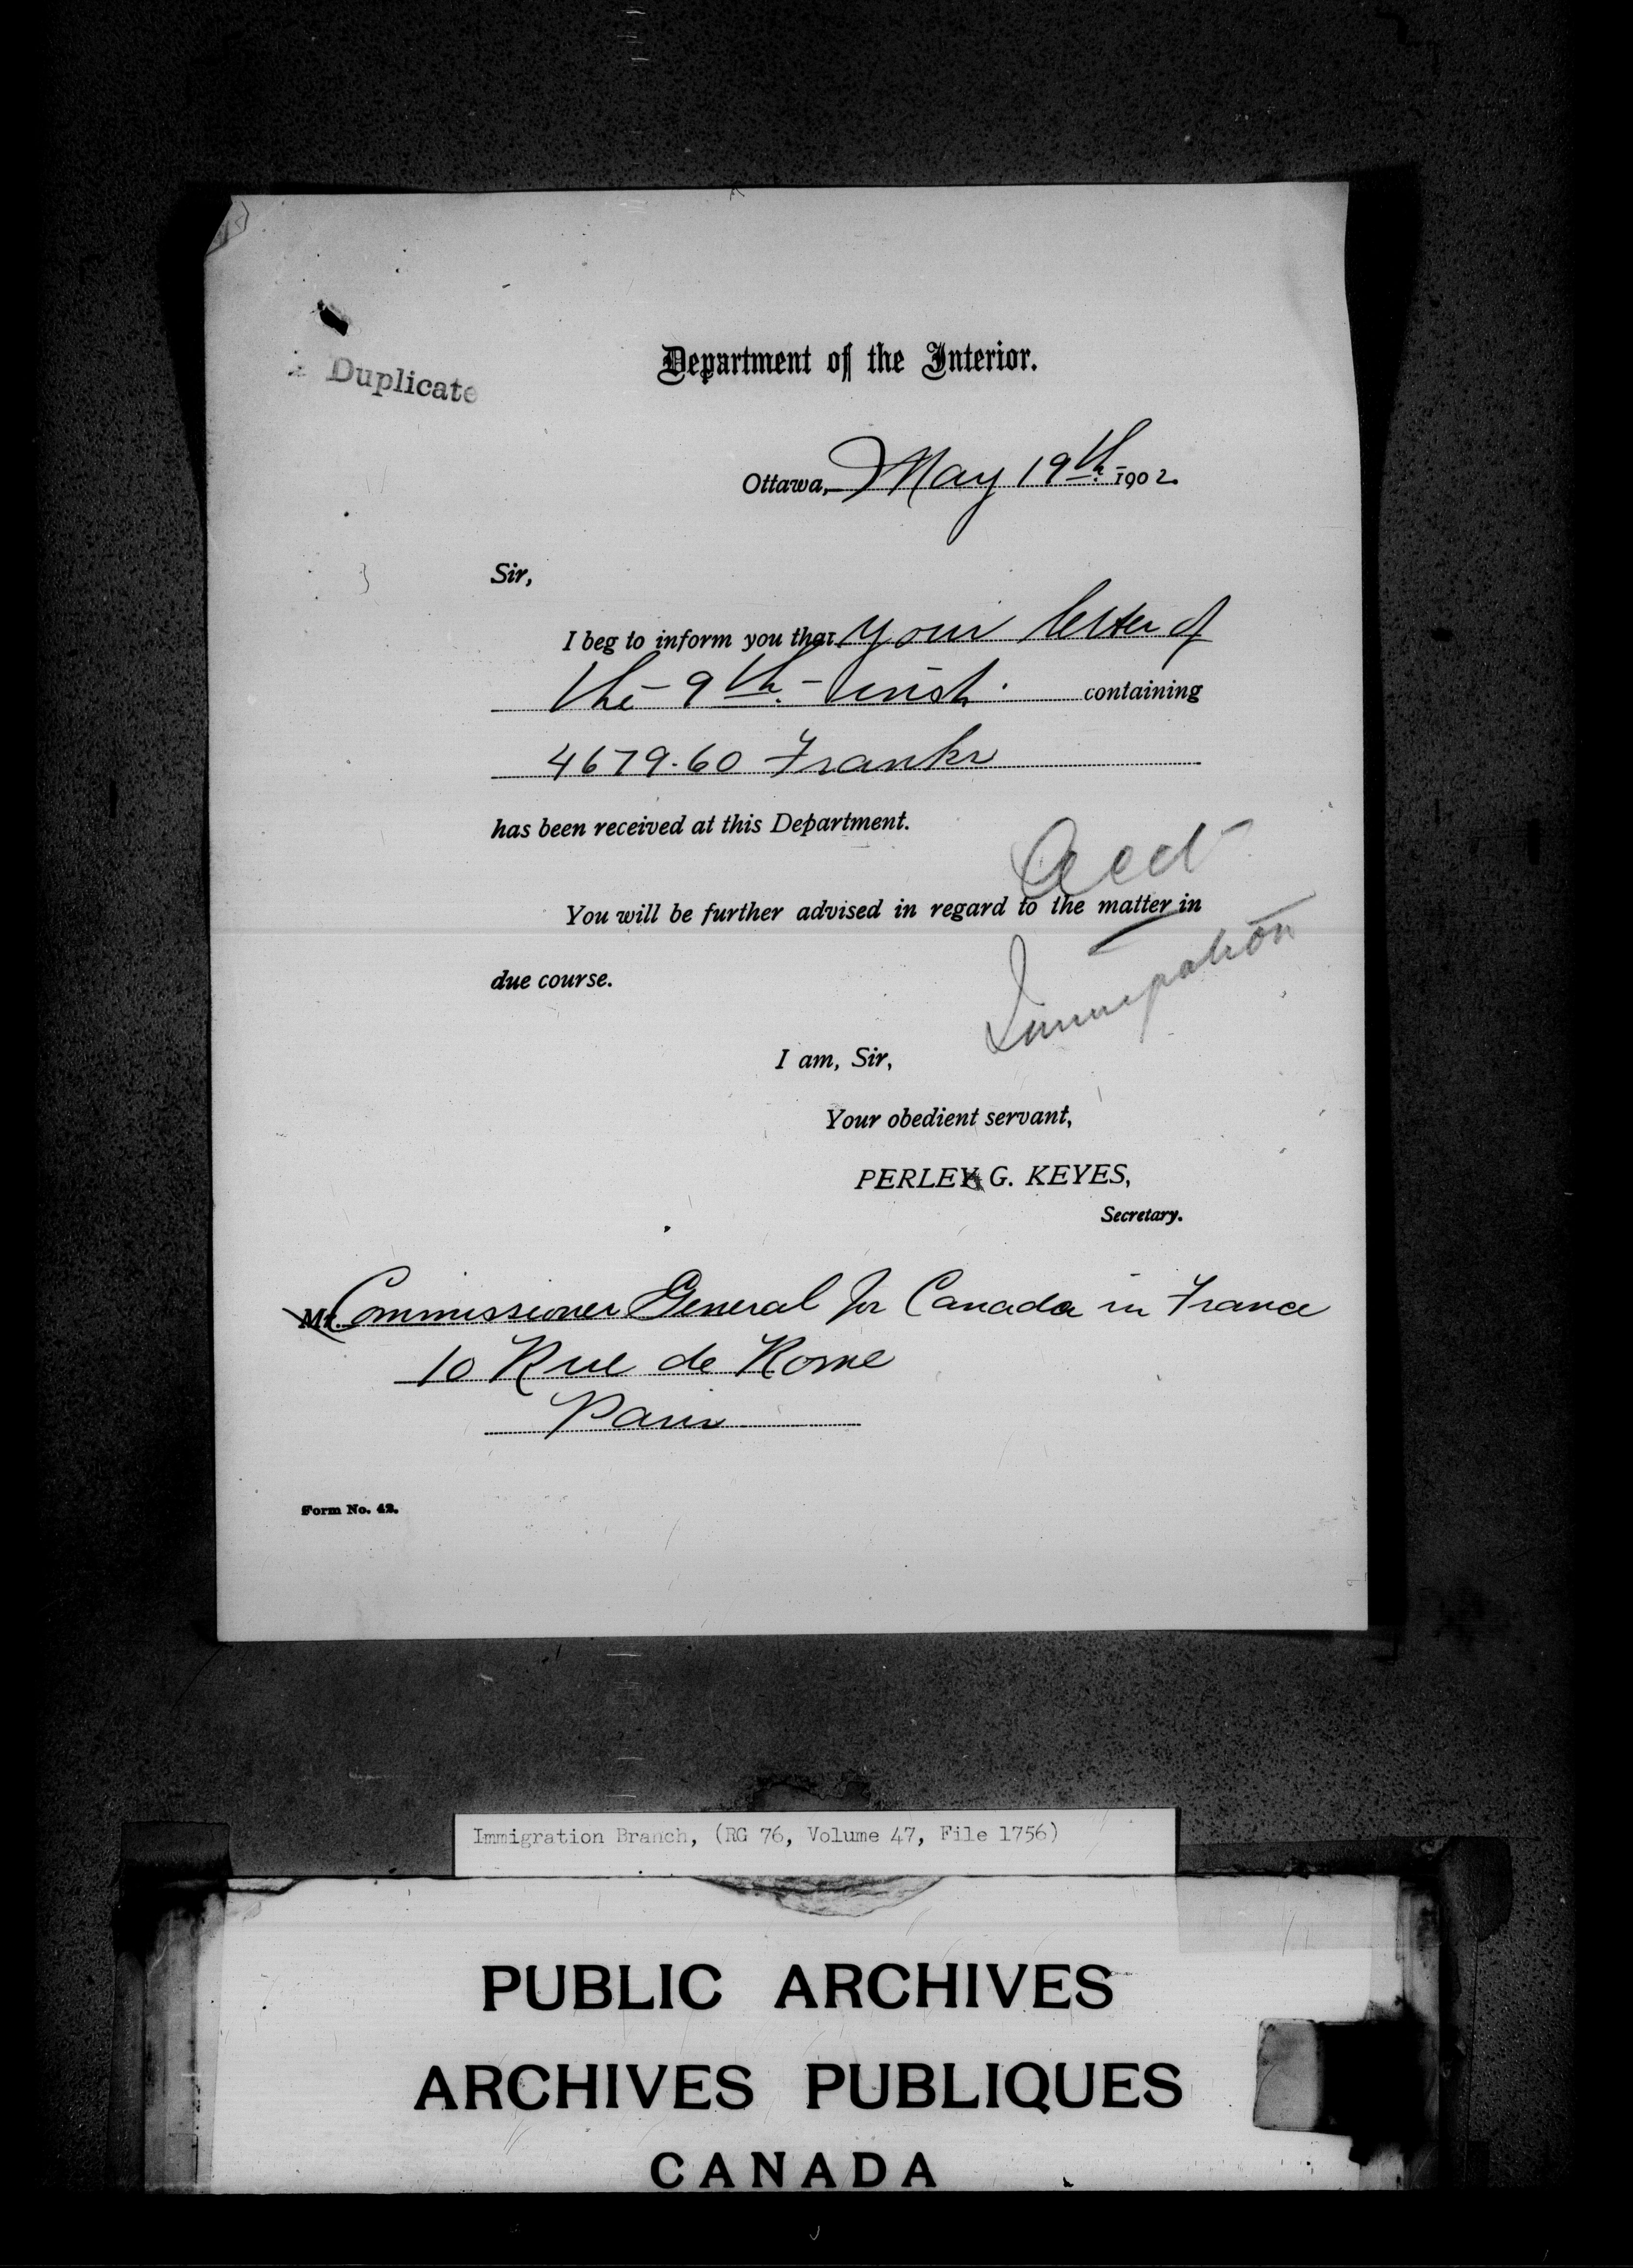 Duplicate
Department of the Interior.
Ottawa, May 19th 1902.
Sir,
I beg to inform you that your letter of
the 9th inst. containing
4679.60 Franks
has been received at this Department.
Acct
You will be further advised in regard to the matter in
due course.
Immigration
I am, Sir,
Your obedient servant,
PERLEY G. KEYES,
Secretary.
Mr. Commissioner General for Canada in France
10 Rue de Rome
Paris
Form No. 42.
Immigration Branch, (RG 76, Volume 47, File 1756)
PUBLIC ARCHIVES
ARCHIVES PUBLIQUES
CANADA